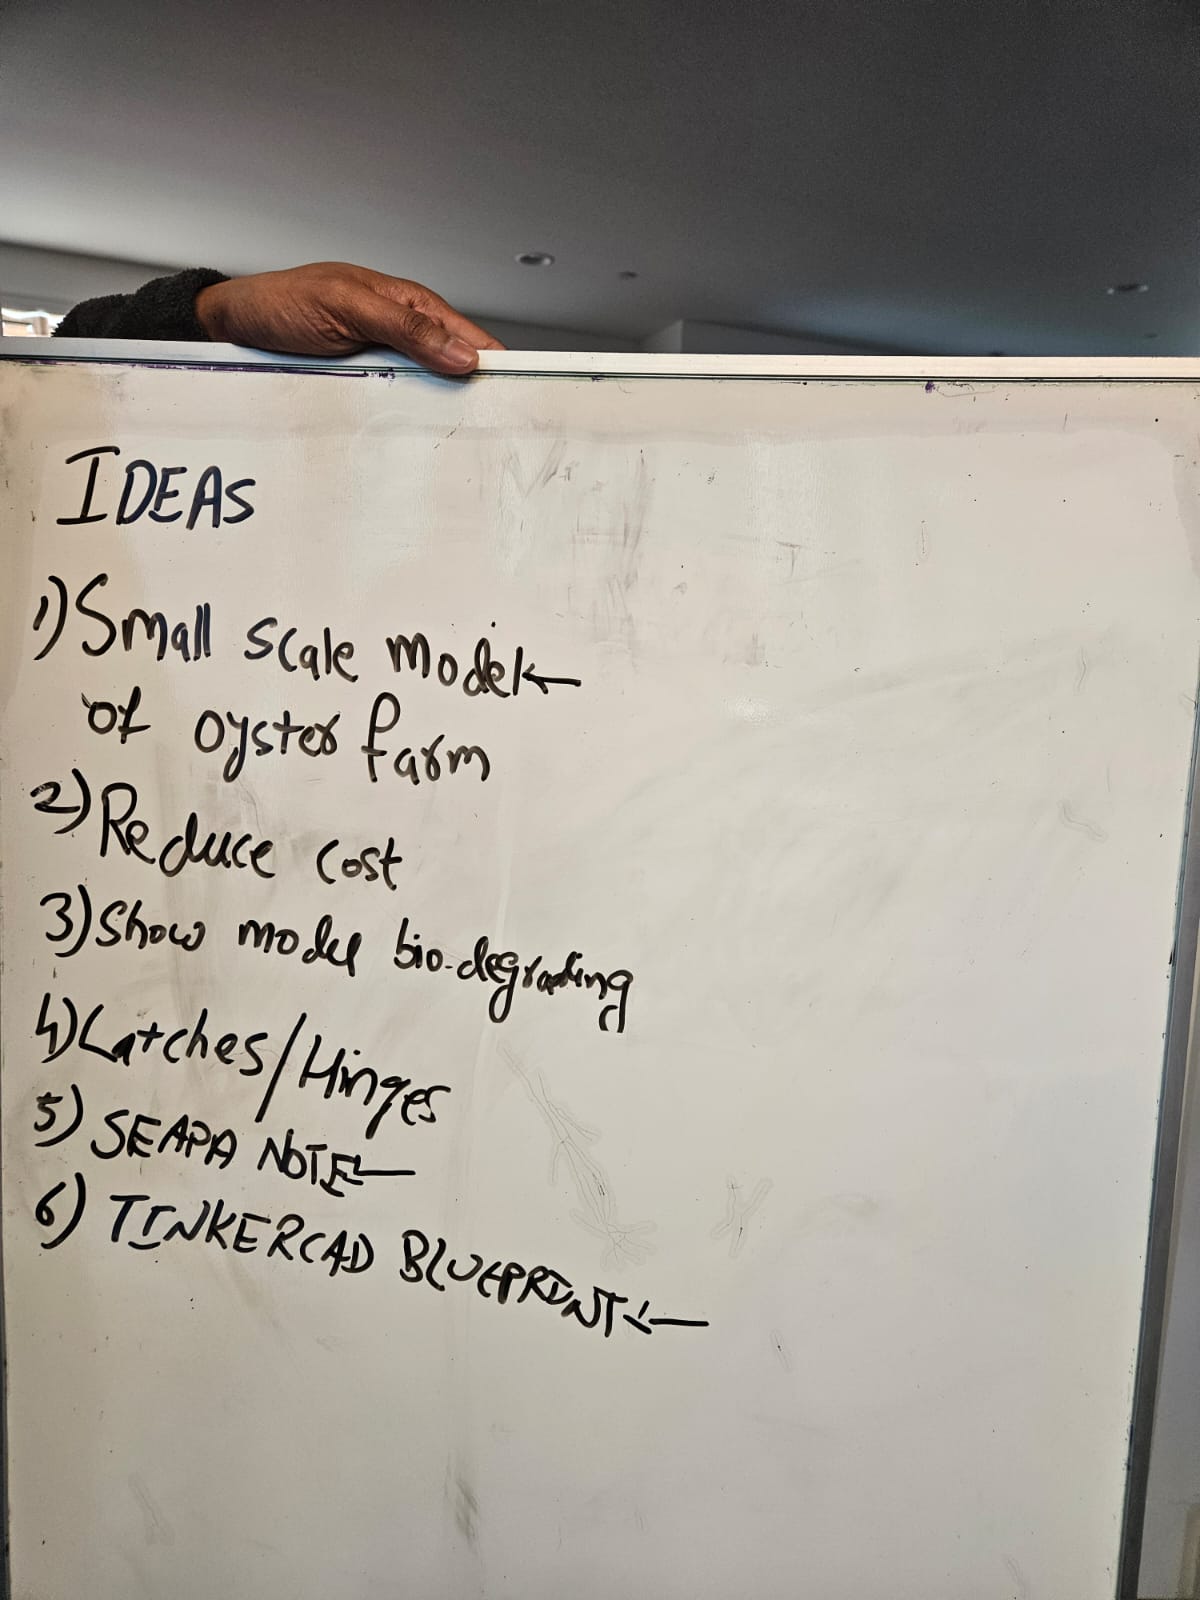 IDEAS
1) Small scale model ←
of oyster farm
2) Reduce cost
3) Show model bio-degrading
4) Latches/Hinges
5) SEAPA NOTE ←
6) TINKERCAD BLUEPRINT ←